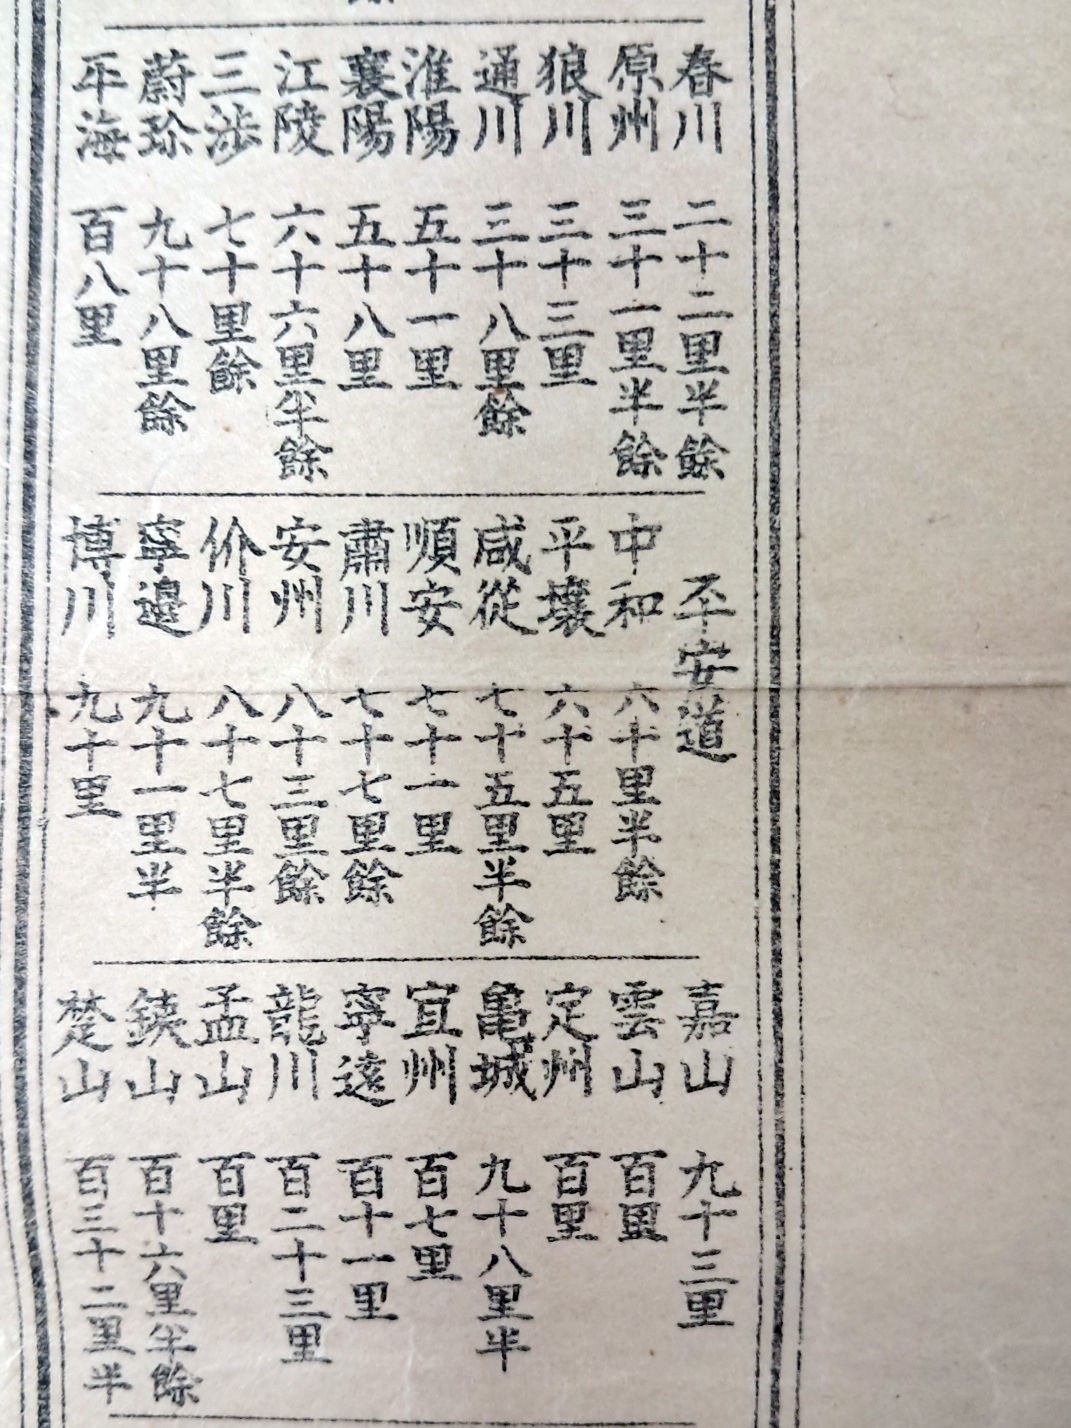 春川 二十二里半餘
原州 三十一里半餘
狼川 三十三里
通川 三十八里餘
淮陽 五十一里
襄陽 五十八里
江陵 六十六里半餘
三涉 七十里餘
蔚珍 九十八里餘
平海 百八里
平安道
中和 六十里半餘
平壤 六十五里
咸從 七十五里半餘
順安 七十一里
肅川 七十七里餘
安州 八十三里餘
价川 八十七里半餘
寧邊 九十一里半
博川 九十里
嘉山 九十三里
雲山 百里
定州 百里
亀城 九十八里半
宜州 百七里
寧遠 百十一里
龍川 百二十三里
孟山 百里
鉄山 百十六里半餘
楚山 百三十二里半